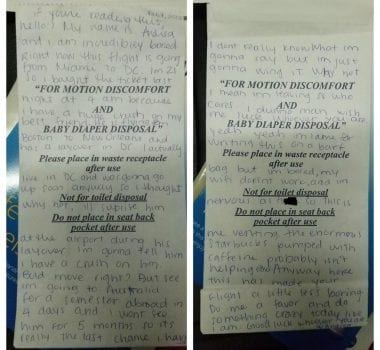 If you're reading this
hello! My name is
and I am incredibly bored
right now this flight is going
from Miami to DC. Im 23
so i bought the ticket last
"FOR MOTION DISCOMFORT
night at 4 am because
AND
i have a huge crush on my
BABY DIAPER DISPOSAL"
best friend
Boston New Orleans and
has a layover in DC. I actually
Please place in waste receptacle
after use
live in DC and was gonna go
up soon anyway so I thought
Not for toilet disposal
why not. Ill suprise him
Do not place in seat back
pocket after use
at the airport during his
layover. im gonna tell him
i have a crush on him.
Bold move right? But see
im going to Australia
for a semester abroad in
4 days and wont see
him for 5 months so its
really the last chance i have
I dont really know what im
gonna say but im just
gonna wing it. Why not
"FOR MOTION DISCOMFORT
I mean im
AND
cares.
wish me luck whoever you are
BABY DIAPER DISPOSAL"
yeah yeah im lame for
writing this on a barf
Please place in waste receptacle
after use
bag but im bored, my
wifi doesnt work, and im
Not for toilet disposal
nervous as so this is
Do not place in seat back
pocket after use
me venting. the enormous
Starbucks pumped with
caffeine probably isn't
helping Anyway hope
this has made your
flight a little less boring.
Do me a favor and do
something crazy today like
I am. Good luck whoever you are